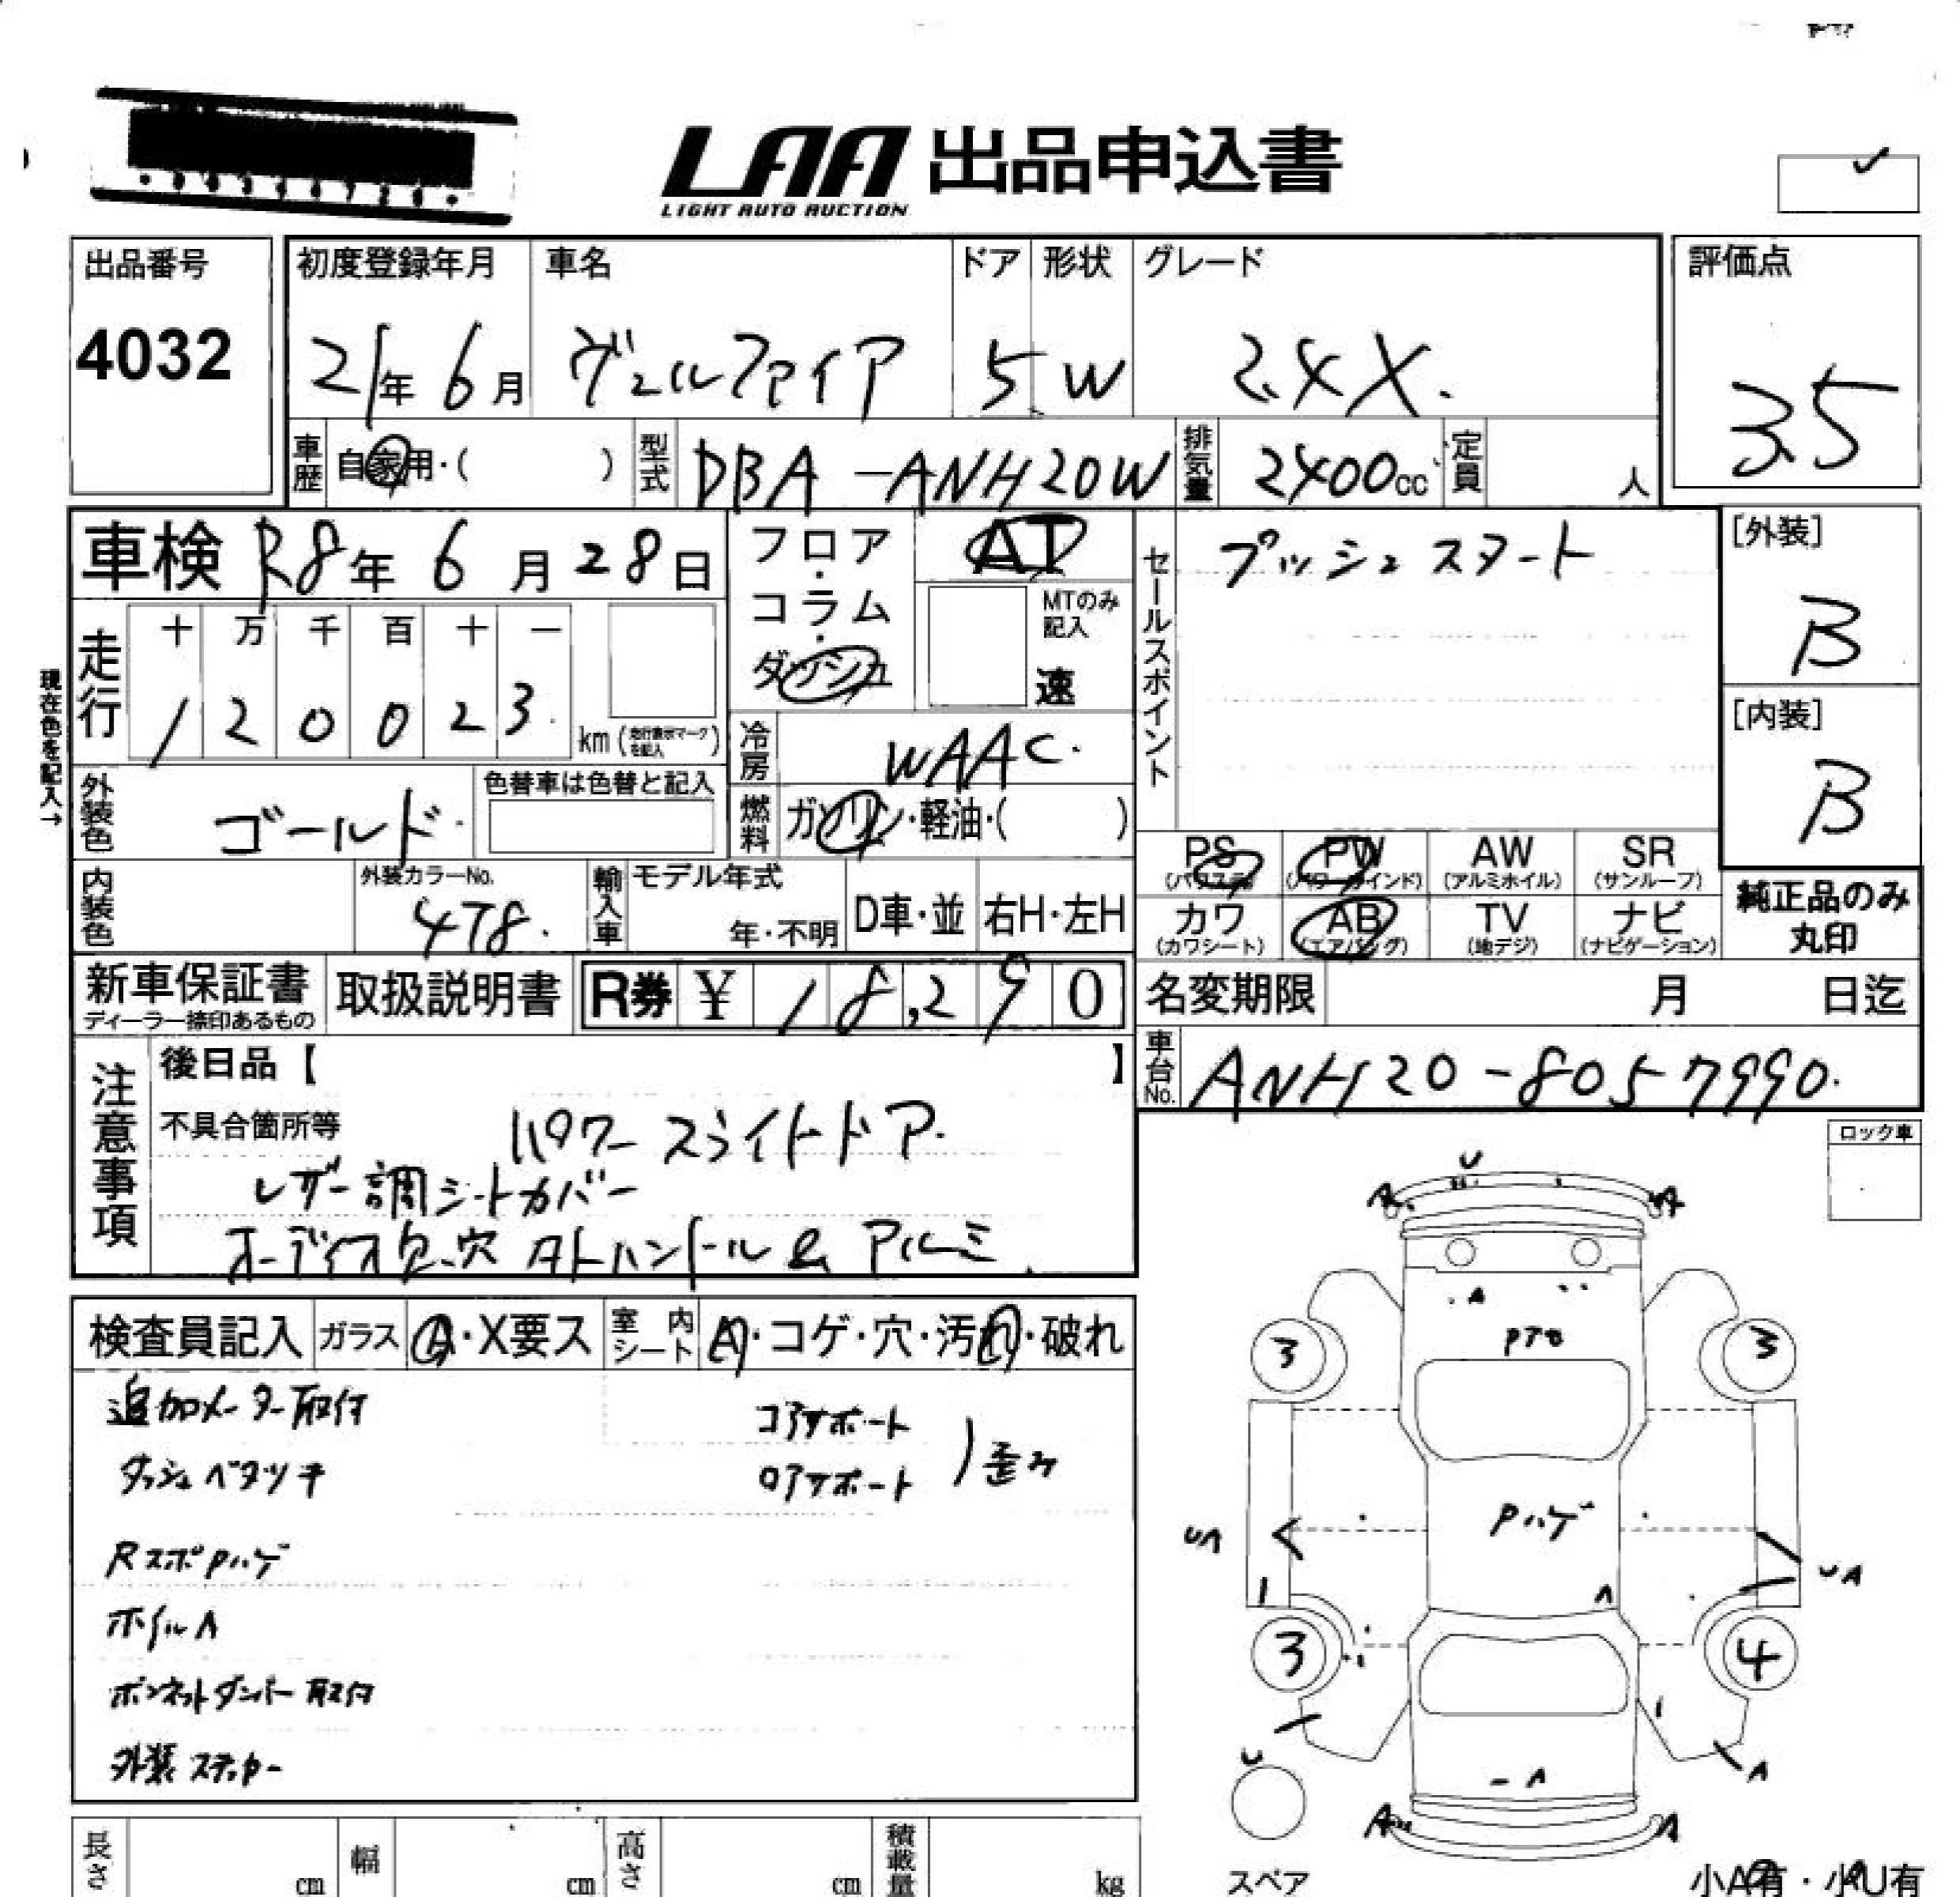 LAA 出品申込書
LIGHT AUTO AUCTION
出品番号
4032
初度登録年月
21年 6月
車名
ヴェルファイア
ドア
5
形状
W
グレード
2.4X.
評価点
3.5
車歴
自家用・( )
型式
DBA-ANH20W
排気量
2400cc
定員
人
車検 R8年 6月 28日
フロア・コラム・ダッシュ
AT
MTのみ記入
速
セールスポイント
プッシュスタート
[外装]
B
[内装]
B
現在色を記入→
走行
十 万 千 百 十 一
1 2 0 0 2 3
km (走行表示マークを記入)
冷房
WAAC.
燃料
ガソリン・軽油・( )
外装色
ゴールド.
色替車は色替と記入
内装色
外装カラーNo.
4T8.
輸入車
モデル年式
年・不明
D車・並
右H・左H
PS
(パワステ)
PW
(パワーウインド)
AW
(アルミホイル)
SR
(サンルーフ)
カワ
(カワシート)
AB
(エアバッグ)
TV
(地デジ)
ナビ
(ナビゲーション)
純正品のみ
丸印
新車保証書
ディーラー捺印あるもの
取扱説明書
R券 ¥ 18,290
名変期限
月 日迄
車台No.
ANH20-8057990.
注意事項
後日品【 】
不具合箇所等
パワースライドドア.
レザー調シートカバー
オーディオ欠.穴 タトハンドル& アルミ
ロック車
検査員記入
ガラス
A・X要ス
室内シート
A・コゲ・穴・汚れ・破れ
追加メーター取付
コアサポート
ダッシュベタツキ
ロアサポート
歪み
RスポPハゲ
ホイルA
ボンネットダンパー取付
外装ステッカー
U
A
A
A
3
3
Pハゲ
UA
UA
A
3
4
U
A
A
A
A
スペア
小A有・小U有
長さ
cm
幅
cm
高さ
cm
積載量
kg